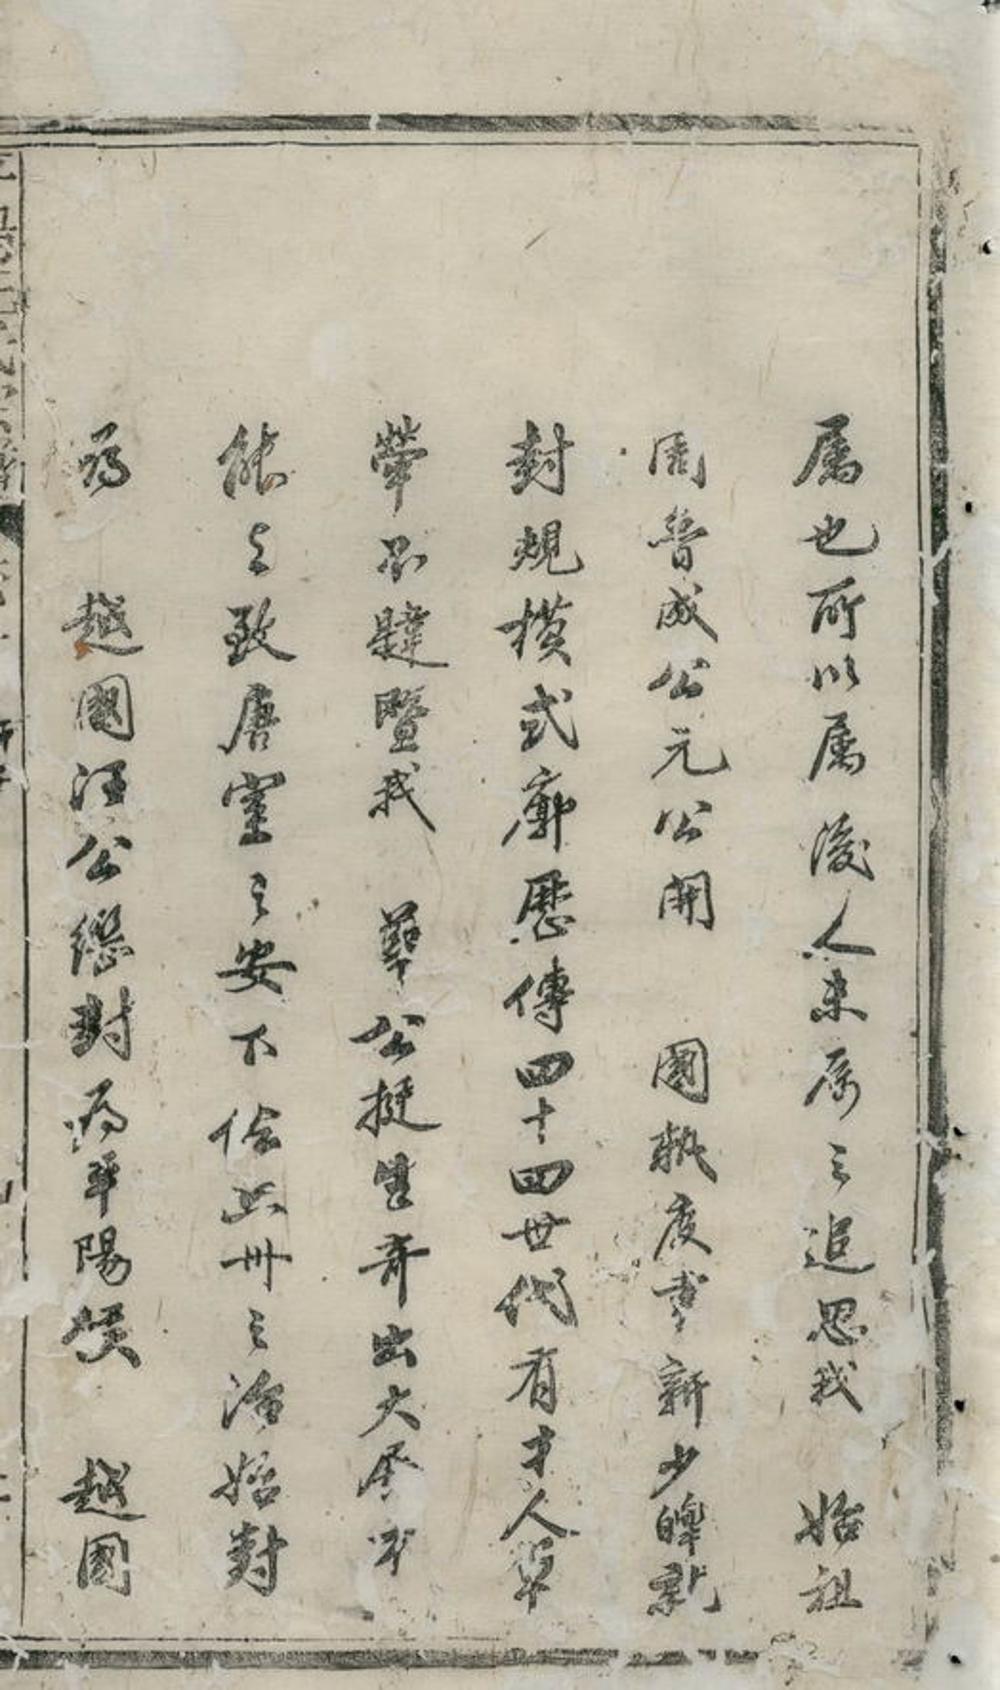 属也所以属後人未属之追思我 始祖
周魯成公元公開 國執度聿新少皞就
封規模式廓歷傳四十四世代有才人
華不韙暨我 華公挺生奇出大展
能之致唐室之安下俭六州之治始封
為 越國汪公继封為平陽侯 越國